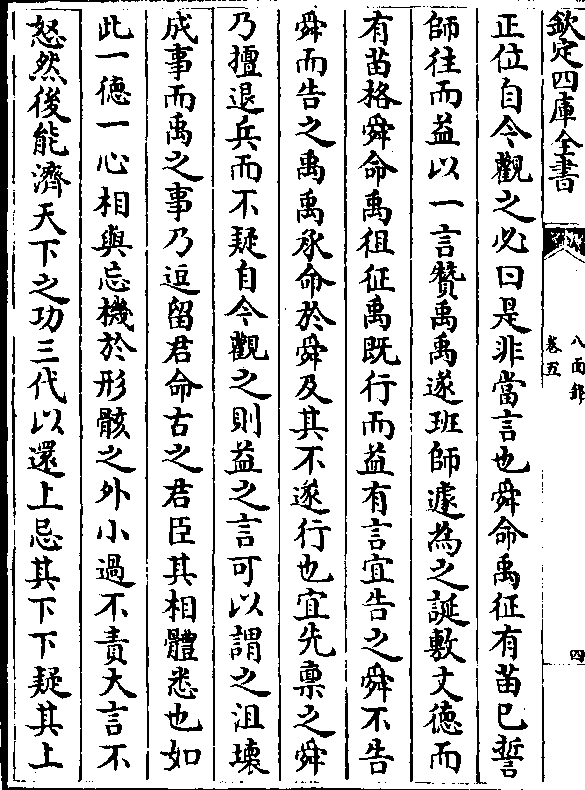 欽定四庫全書
八面鋒
卷五
四
正位自今觀之必曰是非當言也舜命禹征有苗已誓
師往而益以一言贊禹禹遂班師遽為之誕敷文德而
有苗格舜命禹徂征禹既行而益有言宜告之舜不告
舜而告之禹禹承命於舜及其不遂行也宜先禀之舜
乃擅退兵而不疑自今觀之則益之言可以謂之沮壊
成事而禹之事乃逗留君命古之君臣其相體悉也如
此一德一心相與忘機於形骸之外小過不責大言不
怒然後能濟天下之功三代以還上忌其下下疑其上